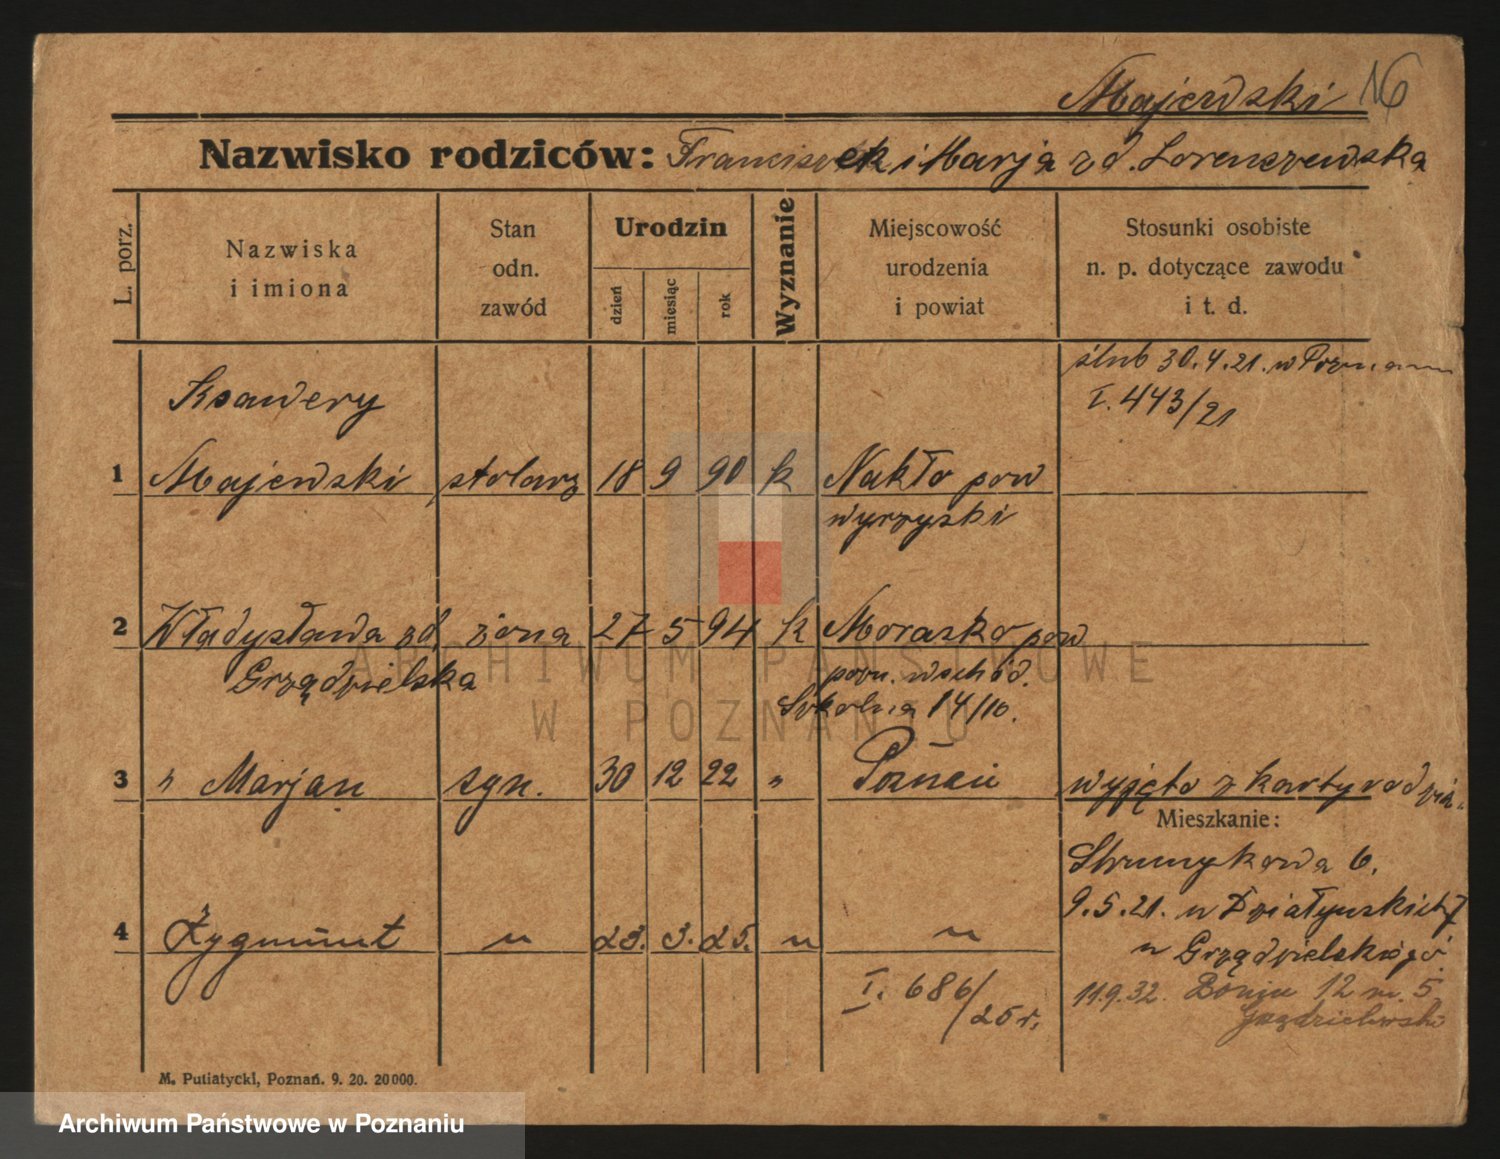 Majewski 16
Nazwisko rodziców: Franciszek i Marja zd. Lorenczewska
L. porz.
Nazwiska
i imiona
Stan
odn.
zawód
Urodzin
dzień
miesiąc
rok
Wyznanie
Miejscowość
urodzenia
i powiat
Stosunki osobiste
n. p. dotyczące zawodu
i t. d.
ślub 30.4.21. w Poznaniu
I. 443/21
Ksawery
1 Majewski stolarz 18 9 90 k Nakło pow
wyrzyski
2 Władysława zd. żona 27 5 94 k Morasko pow
Grządzielska pozn. wschód.
Sokolna 14/10.
3 " Marjan syn. 30 12 22 " Poznań wyjęto z karty rodzin.
Mieszkanie:
Strumykowa 6.
9.5.21. Działyńskich 7
4 Zygmunt " 23. 3. 25. " "
u Grządzielskiego
I. 686/25 r.
11.9.32. 12 m. 5
M. Putiatycki, Poznań. 9. 20. 20000.
ARCHIWUM PAŃSTWOWE
W POZNANIU
Archiwum Państwowe w Poznaniu